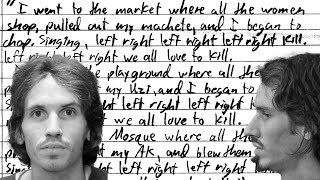 "I went to the market where all the women
shop, pulled out my machete, and I began to
chop, Singing, left right left right left right kill.
left right left right we all love to kill.
the playground where all the
my Uzi, and I began to
left right left right
we all love to kill.
Mosque where all the
my AK, and blew them
left right left right